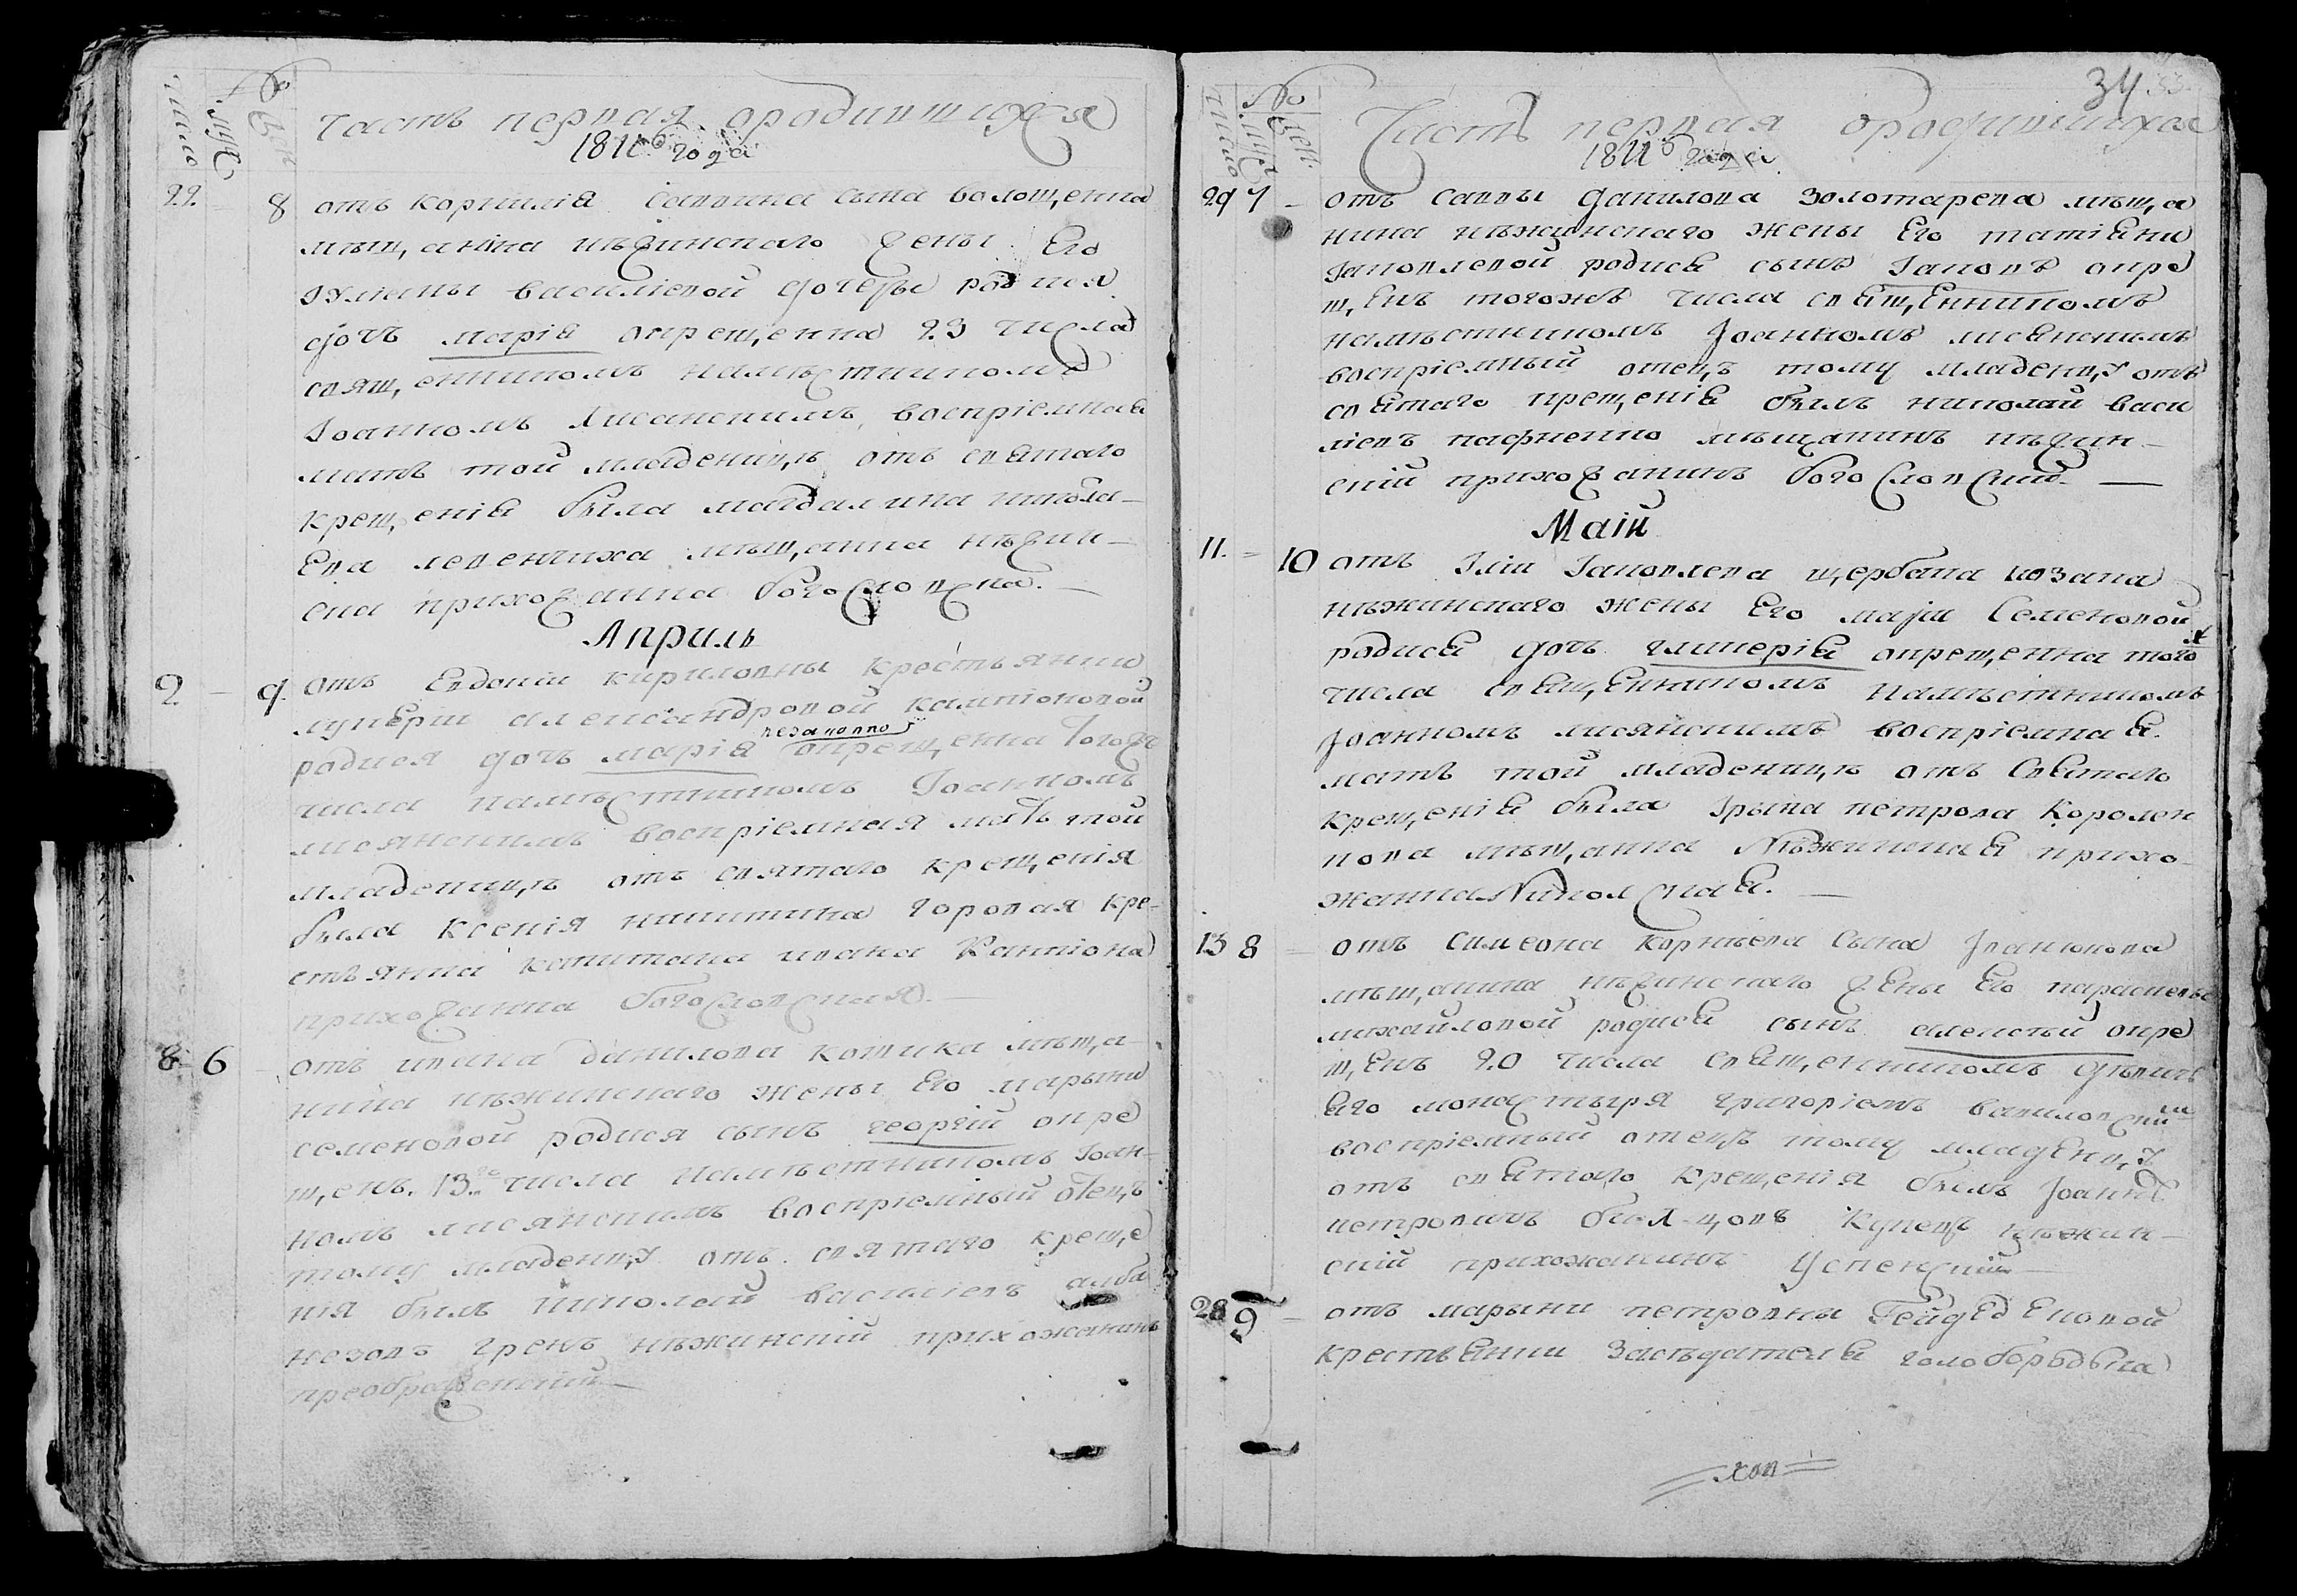 число
муж
жен
№
часть первая о родившихся
1811го года
22. 8 отъ корнилія саввина сына волощенка
мѣщанина нѣжинскаго жены Его
Уліаны василіевой дочеры родися
дочь марія окрещенна 23 числа
священникомъ намѣстникомъ
Іоанномъ Лисанскимъ, воспріемная
мать той младеницѣ отъ святаго
крещенія была магдалина никола-
Ева левенчиха мѣщанка нѣжин-
ска прихожанка богословска. —
Априль
2 9. отъ Евдокіи кириловны крестьянки
лукеріи александровой кантіоновой
незаконно
родися дочь марія окрещенна Тогожъ
числа намѣстникомъ Іоанномъ
лисянскимъ воспріемная мать той
младеницѣ отъ святаго крещенія
была ксенія никитина горовая кре-
стьянка капитана ивана Кантіона
прихожанка богословская. —
8 6 отъ ивана данилова котика мѣща-
нина нѣжинскаго жены Его марыни
семеновой родися сынъ георгій окре
щенъ. 13го числа намѣстникомъ Іоан-
номъ лисянскимъ воспріемный отецъ
тому младенцу отъ святаго креще
нія былъ николай василіевъ алба
незовъ грекъ нѣжинскій прихожанинъ
преображенскій —
34
число
муж
жен.
№
Часть первая о родившихся
1811го года
29 7 отъ саввы данилова золотарева мѣща
нина нѣжинскаго жены Его татіани
Іаковлевой родися сынъ Іаковъ окре
щенъ тогожъ числа священникомъ
намѣстникомъ Іоанномъ лисянскимъ
воспріемный отецъ тому младенцу отъ
святаго крещенія былъ николай васи
ліевъ пафненко мѣщанинъ нѣжин-
скій прихожанинъ богословский. —
Маій
11. 10 отъ Іліи Іаковлева щербака козака
нѣжинскаго жены Его маріи Семеновой
родися дочь гликерія окрещенна того ж
числа священникомъ намѣстникомъ
Іоанномъ лисянскимъ воспріемная.
мать той младеницѣ отъ Святаго
крещенія была Ірына петрова Королен
кова мѣщанка Нѣжинская прихо-
жанка Николская. —
13 8 отъ симеона корнѣева Сына Іванюкова
мѣщанина нѣжинскаго жены Его параскевы
михайловой родися сынъ алексѣй окре
щенъ 20 числа священникомъ дѣвичь
Яго монастыря григоріемъ вавиловским
воспріемный отецъ тому младенцу
отъ святаго крещенія былъ Іоаннъ
петровичъ купецъ нѣжин-
скій прихожанинъ Успенский —
28 9 отъ марыни петровны Гейдеденовой
крестьянки засѣдателя голобородька